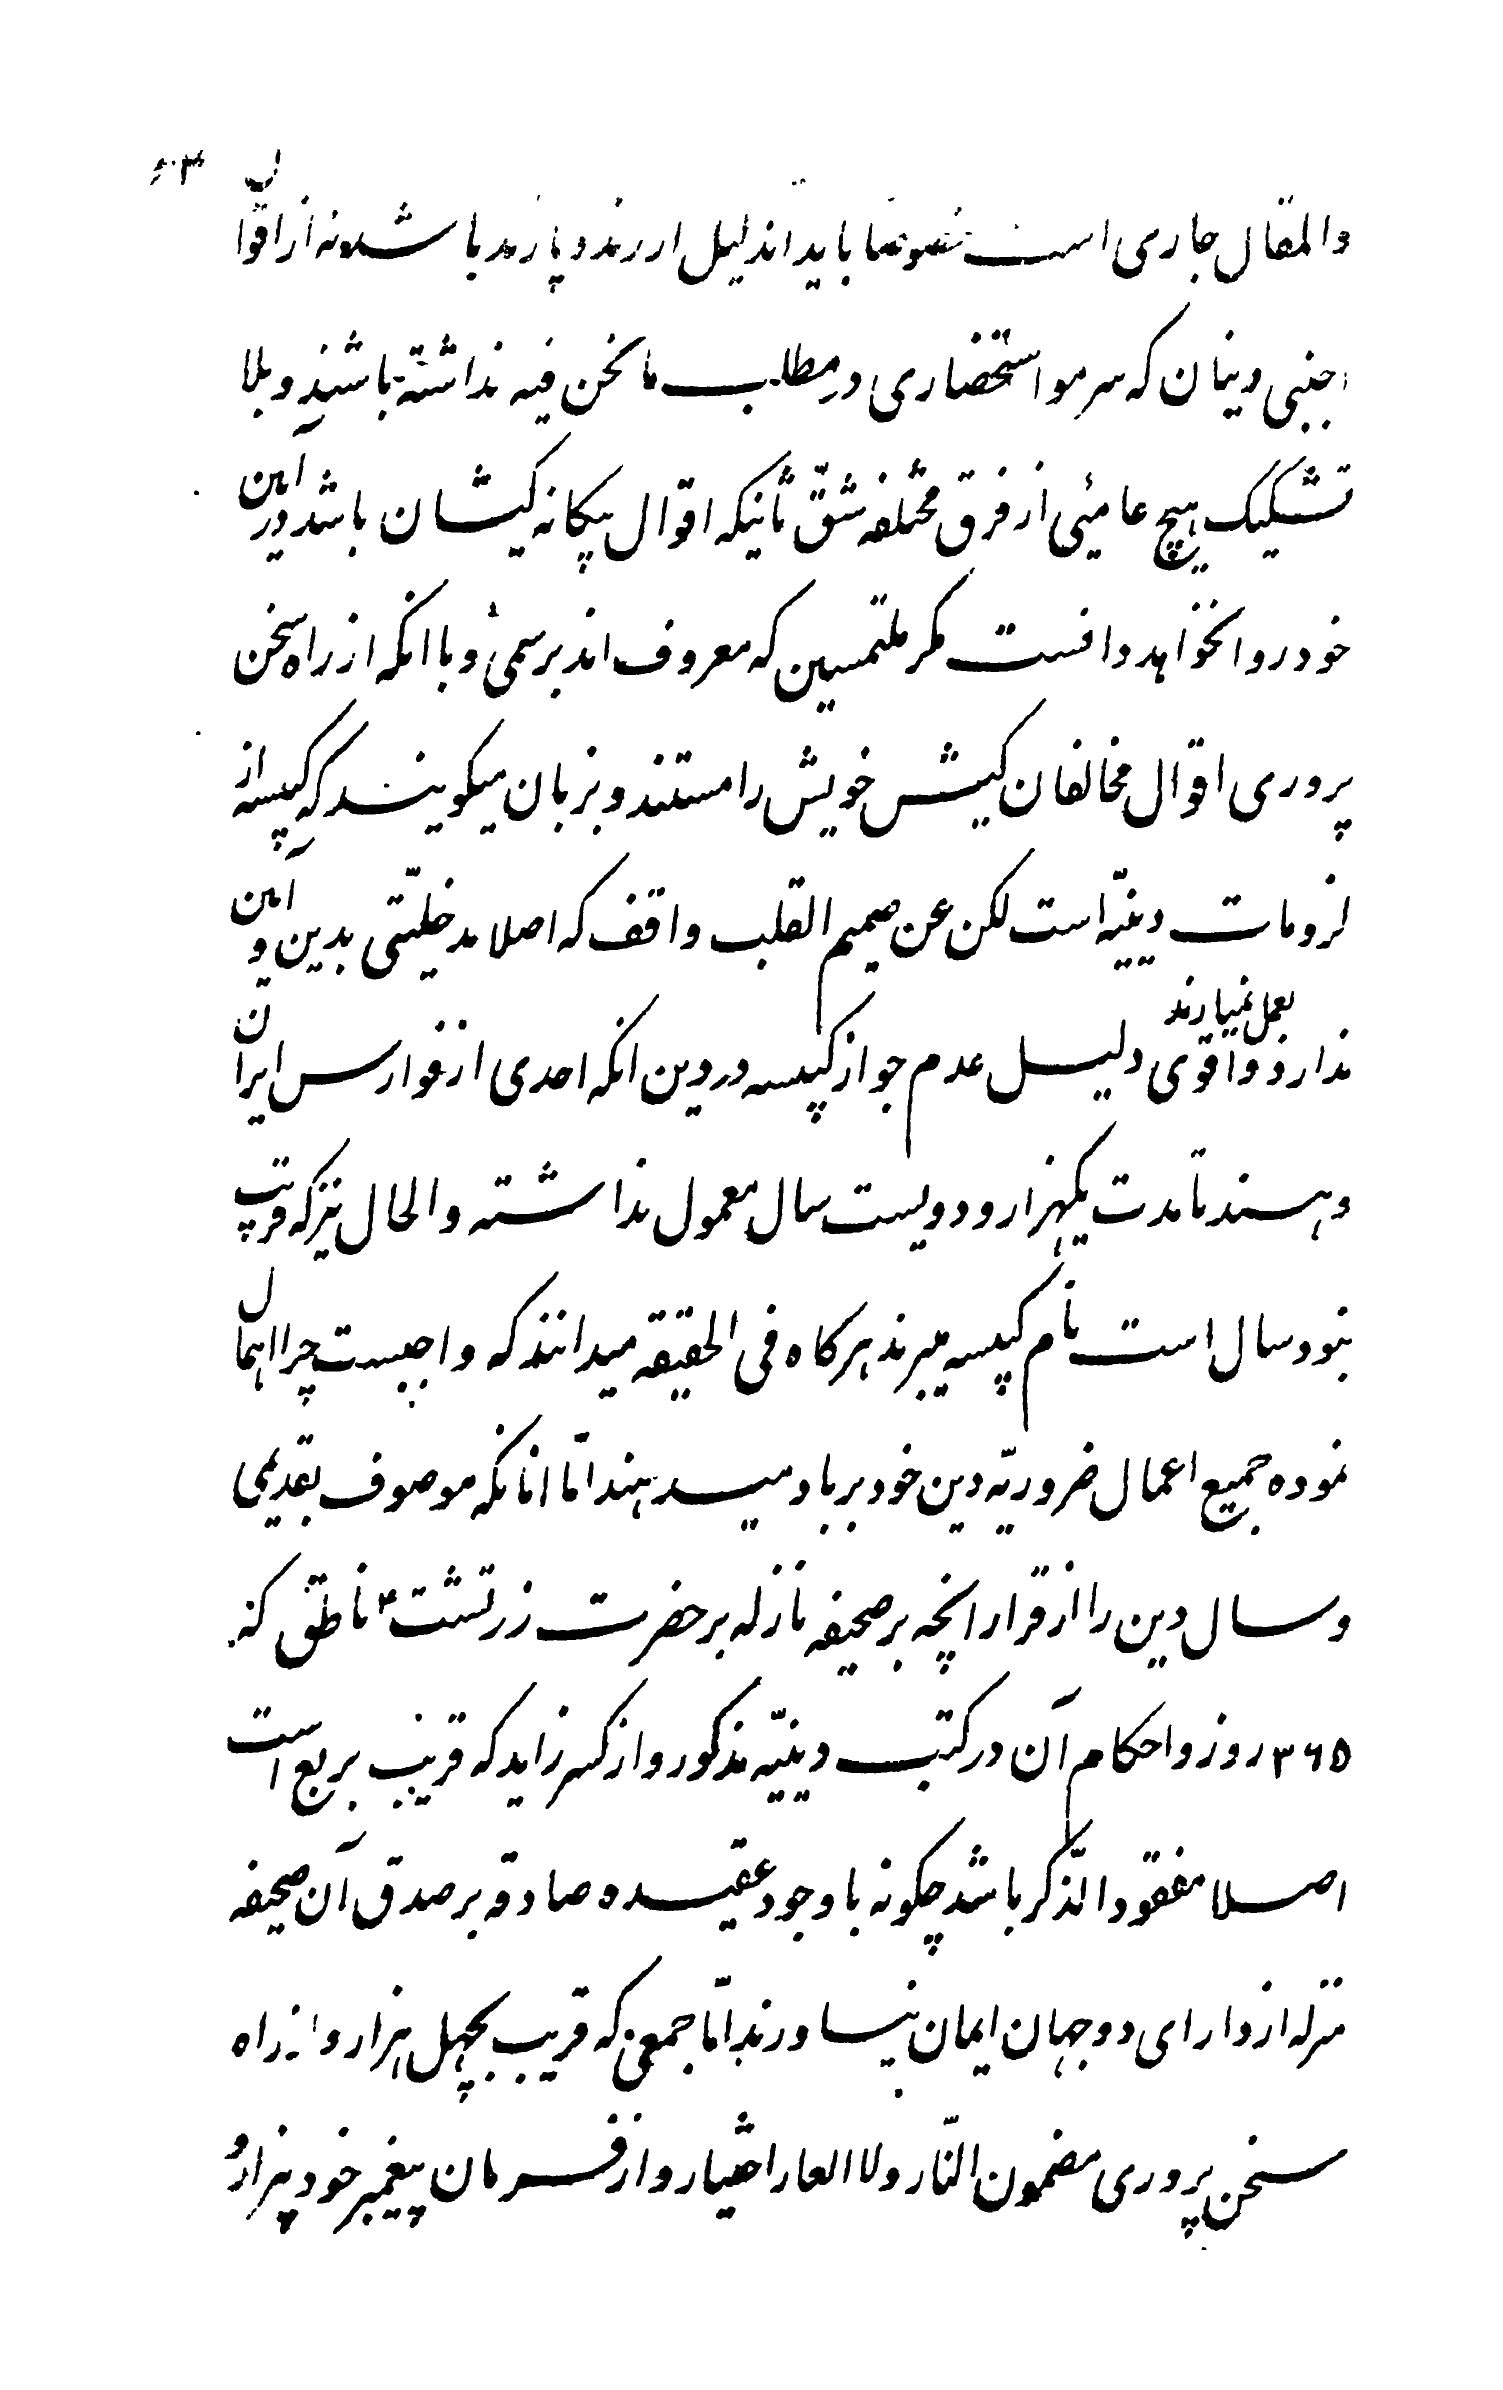 والمقال جاری است خصوصا باید اندلیل از زند و پازند باشد نه از اقوال
اجنبی دینان که سر مو استحضاری در مطلب ما نحن فیه نداشته باشند و بلا
تشکیک هیچ عامیئی از فرق مختلفه شقّ ثانیکه اقوال بیکانه کیشان باشد در آئین
خود روا نخواهد دانست مکر ملتمسین که معروف اند برسمیٔ و با انکه از راه سخن
پروری اقوال مخالفان کیش خویش را مستند و بزبان میکویند که کپیسه از
لزومات دینیّه است لکن عن صمیم القلب واقف که اصلا مدخلیّتی بدین و آئین
ندارد و اقوی دلیل عدم جواز کپیسه در دین انکه احدی از فوارس ایران
بعمل نمیارند
و هند تا مدت یکهزار و دویست سال معمول نداشته و الحال نیز که قریب
بنود سال است نام کپیسه میبرند هرکاه فی الحقیقه میدانند که واجبست چرا اهمال
نموده جمیع اعمال ضروریّه دین خود بر باد میدهند امّا انانکه موصوف بقدیمی
و سال دین را از قرار انچه بر صحیفه نازله بر حضرت زرتشت ۴ ناطق که
۳۶۵ روز و احکام آن در کتب دینیّه مذکور و از کسر زاید که قریب بربع است
اصلا مفقود الذّکر باشد چکونه با وجود عقیده صادقه بر صدق آن صحیفه
منزله از دارای دو جهان ایمان نیاورند امّا جمعی که قریب بچهل هزار و از راه
سخن پروری مضمون النّار ولا العار اختیار و از فرمان پیغمبر خود بیزار و